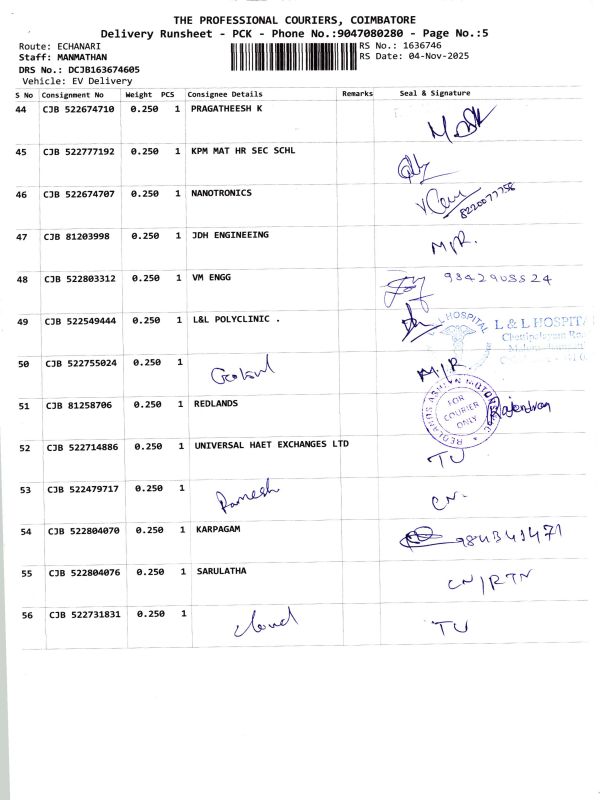 THE PROFESSIONAL COURIERS, COIMBATORE
Delivery Runsheet - PCK - Phone No.:9047080280 - Page No.:5
Route: ECHANARI RS No.: 1636746
Staff: MANMATHAN RS Date: 04-Nov-2025
DRS No.: DCJB163674605
Vehicle: EV Delivery
S No Consignment No Weight PCS Consignee Details Remarks Seal & Signature
44 CJB 522674710 0.250 1 PRAGATHEESH K
45 CJB 522777192 0.250 1 KPM MAT HR SEC SCHL
46 CJB 522674707 0.250 1 NANOTRONICS
8220077758
47 CJB 81203998 0.250 1 JDH ENGINEEING M/R.
48 CJB 522803312 0.250 1 VM ENGG
49 CJB 522549444 0.250 1 L&L POLYCLINIC .
L & L HOSPITA
50 CJB 522755024 0.250 1 M/R
51 CJB 81258706 0.250 1 REDLANDS Rajendran
FOR
COURIER
ONLY
52 CJB 522714886 0.250 1 UNIVERSAL HAET EXCHANGES LTD TU
53 CJB 522479717 0.250 1 Ramesh CN.
54 CJB 522804070 0.250 1 KARPAGAM 984341471
55 CJB 522804076 0.250 1 SARULATHA CN/RTN
56 CJB 522731831 0.250 1 cloud TU